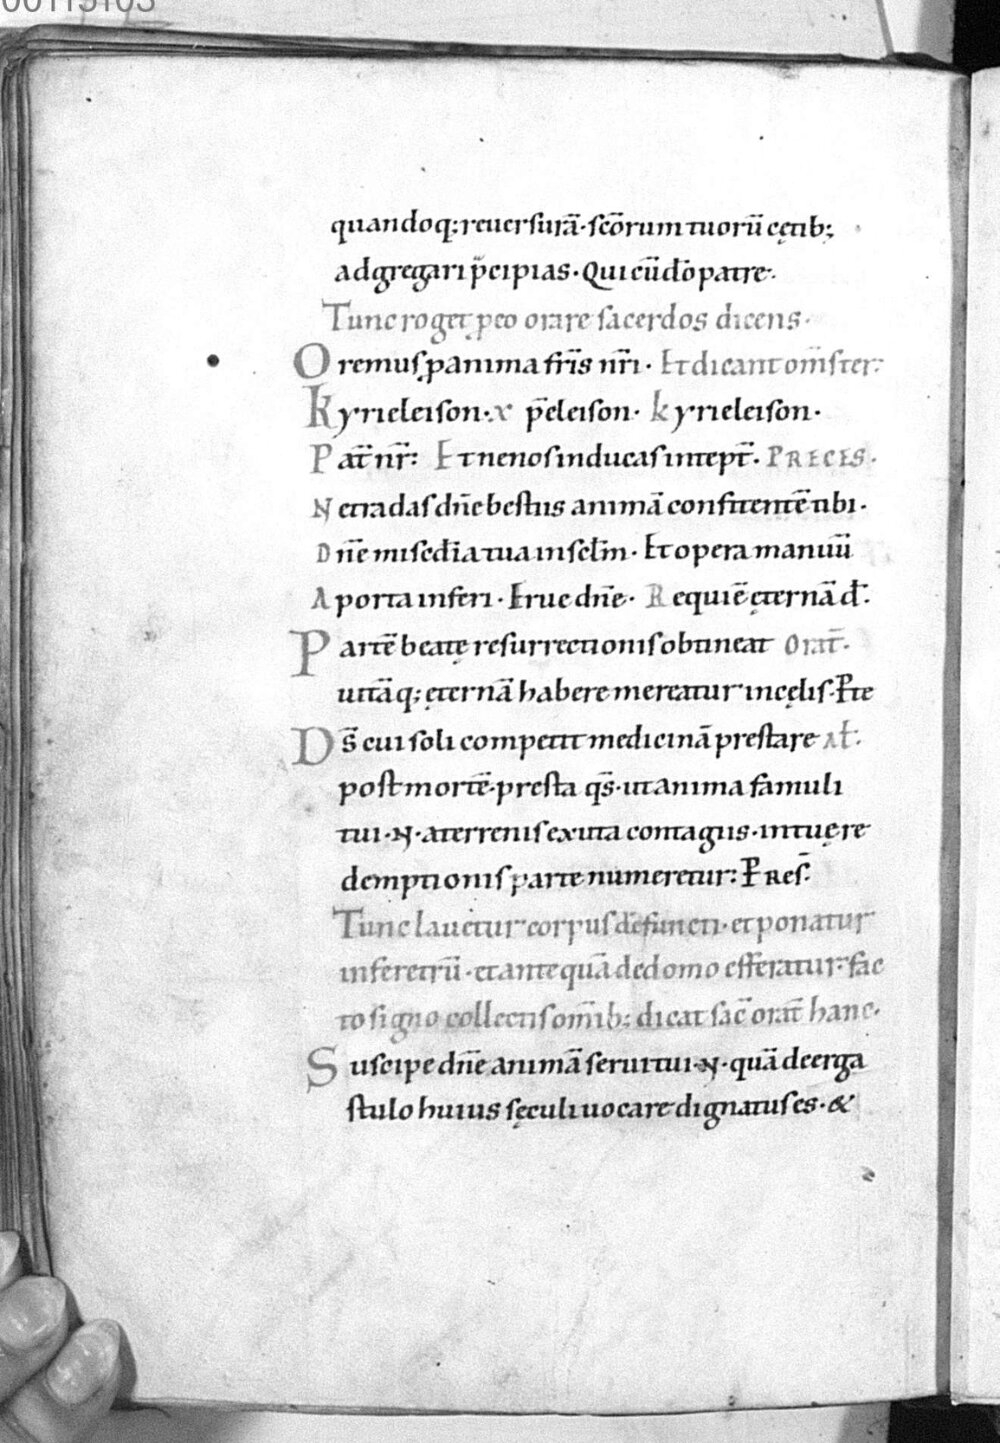 quandoq;reuersurā·scōrum tuorū cętib;
adgregari p̄cipias·Qui cū dō patre·
Tunc roget p eo orare sacerdos dicens·
Oremus p anima fr̄is nr̄i· Et dicant om̄s ter:
Kyrieleison·x p̄eleison· kyrieleison·
Pat̄ nr̄: Et ne nos inducas in tept̄· PRECES·
Ne tradas dn̄e bestiis animā confitentē tibi·
Dn̄e misc̄dia tua in sc̄lm· Et opera manuū
A porta inferi·Erue dn̄e· Requiē ęternā d̄:
Partē beatę resurrectionis obtineat Orat̄·
uitāq; ęternā habere mereatur in cęlis·P̄te
Ds̄ cui soli competit medicinā prestare al̄:
post mortē·presta qs̄·ut anima famuli
tui·N·a terrenis exuta contagiis·in tuę re
demptionis parte numeretur: P̄ Res̄:
Tunc lauetur corpus defuncti·et ponatur
in feretrū·et antequā de domo efferatur·fac
to signo collectis om̄ib; dicat sac̄ orat̄ hanc·
Suscipe dn̄e animā serui tui·N·quā de erga
stulo huius sęculi uocare dignatus es·&